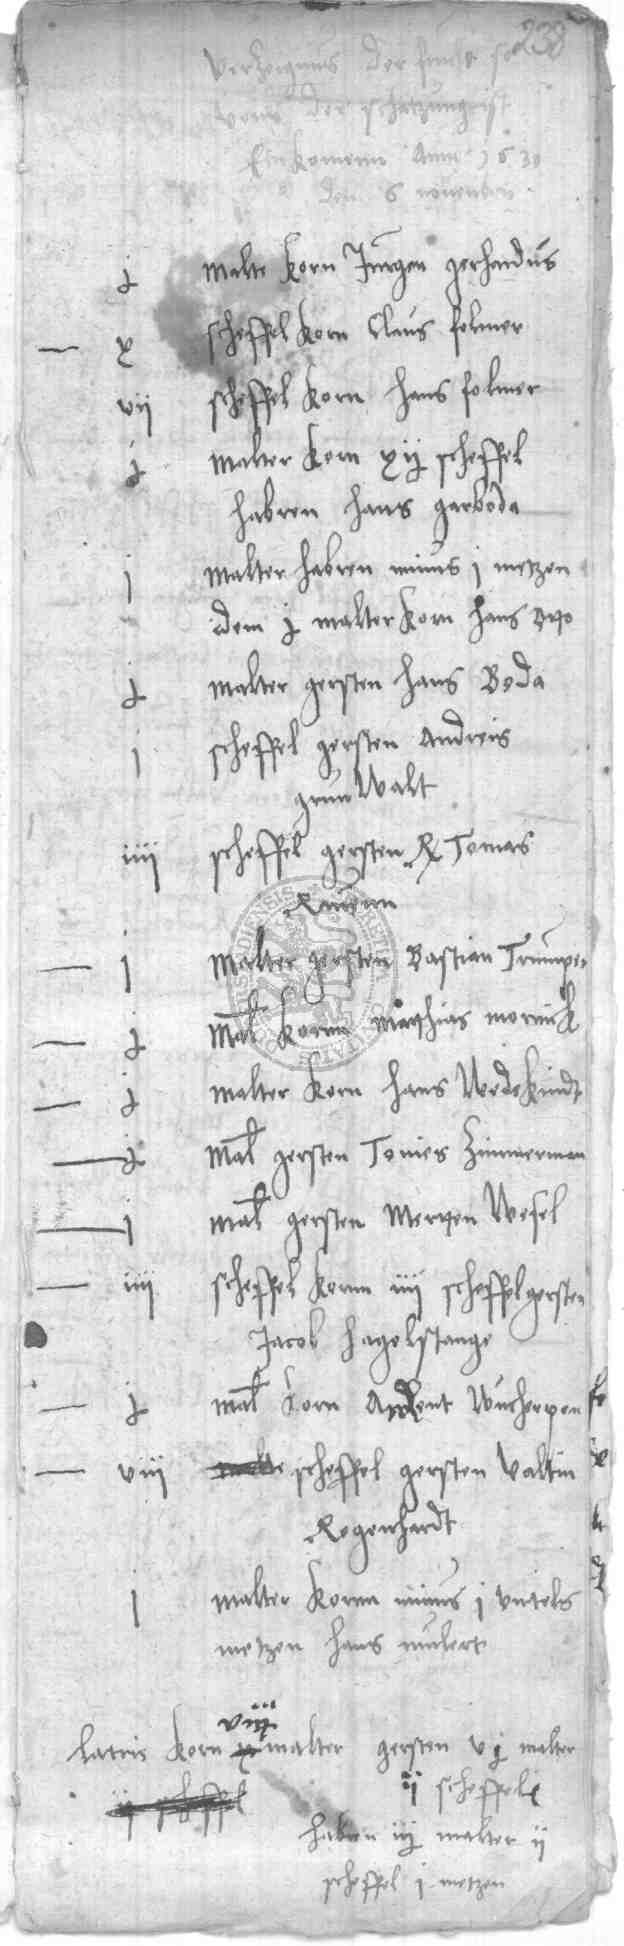 238
Verzeignus der frucht so
von der schatzung ist
Einkomenn Anno 1630
den 6 november
j malte korn Jurgen gerhardus
— x scheffel korn Claus folmer
vij scheffel korn hans folmer
j malter korn xij scheffel
habren hans garboda
j malter habren minus j metzen
dem j malter korn hans
j malter gersten hans Boda
j scheffel gersten Andreis
grunWalt
iiij scheffel gersten Tomas
— j malter gersten Bastian Trumper
— j mal kornn Mathias mornick
— j malter korn hans Wedekindt
— j mal gersten Tonies Zimmerman
— j mal gersten Merten Wesel
— iiij scheffel kornn iiij scheffel gersten
Jacob hagelstange
— j mal korn Arent Wucherpen
— viij malte scheffel gersten Valtin
Regenhardt
j malter kornn minus j virtels
metzen hans mulert
viij
latris korn malter gersten vj malter
ij scheffel ij scheffel
habren iij malter ij
scheffel j metzen